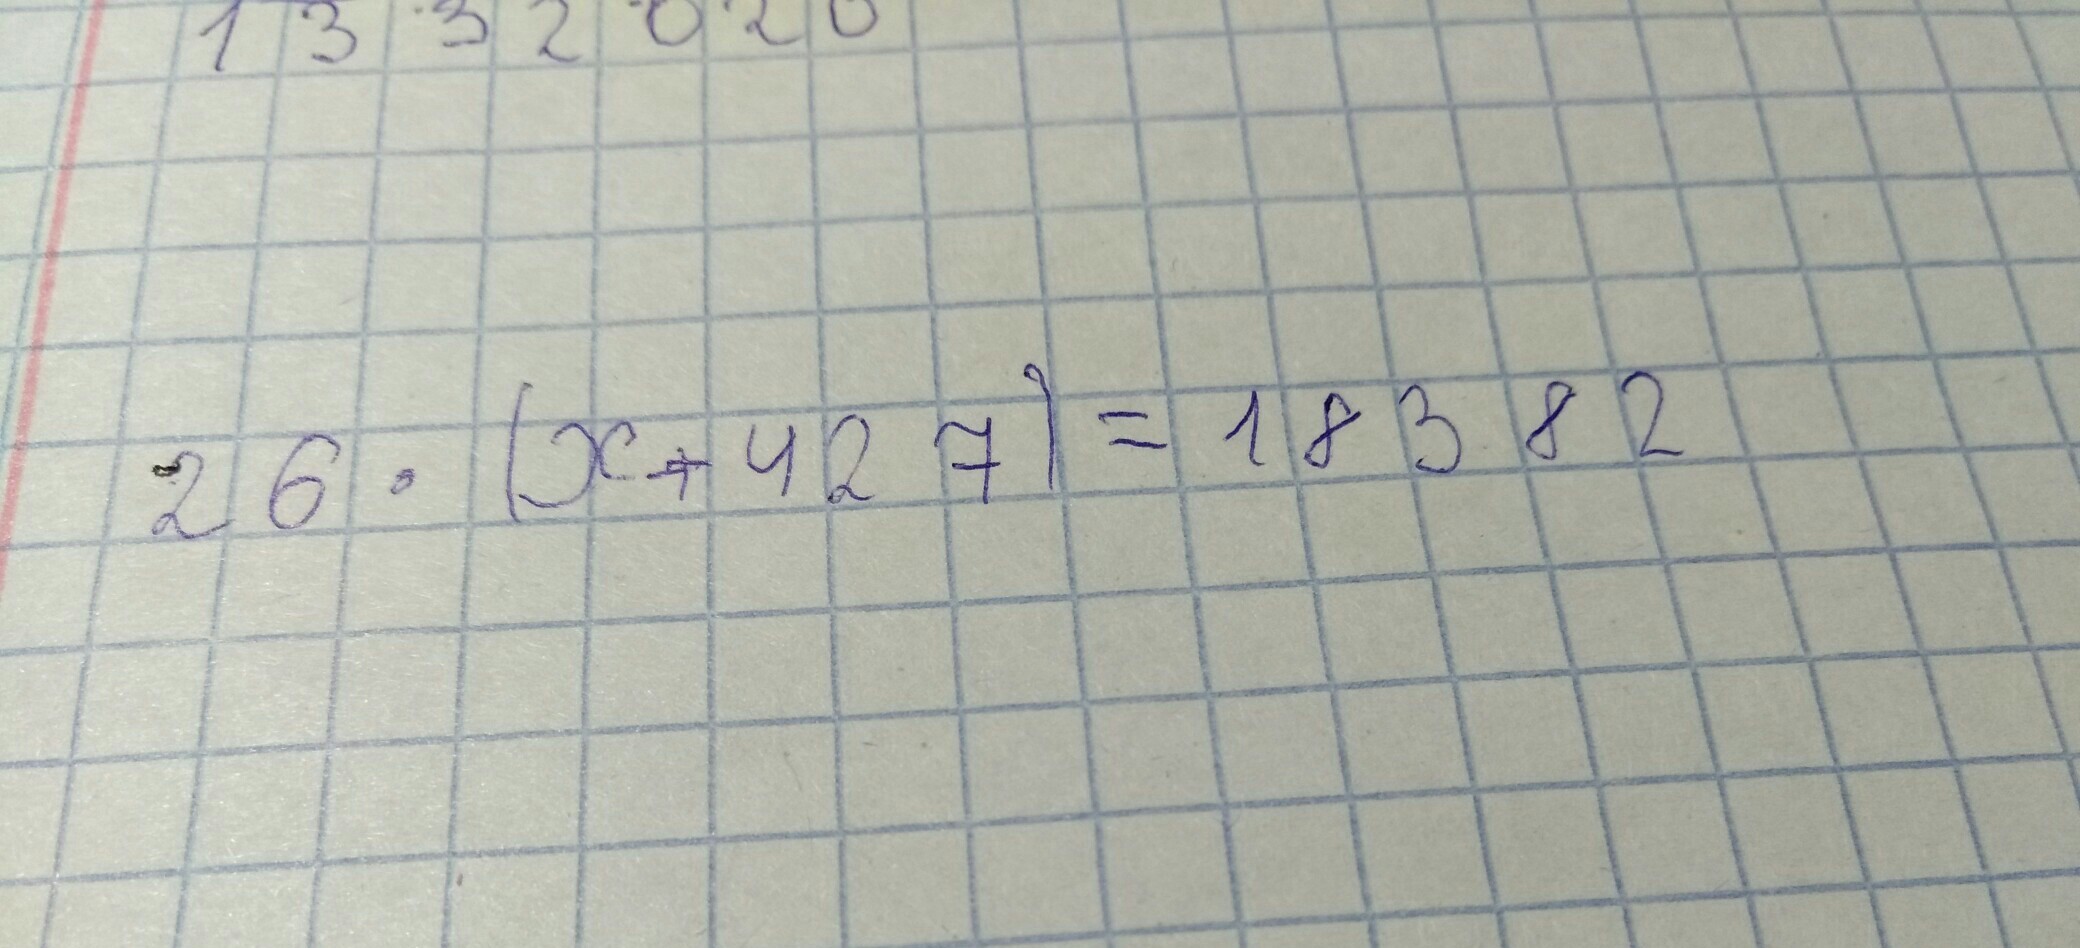 1332020
26 · (x+427) = 18382